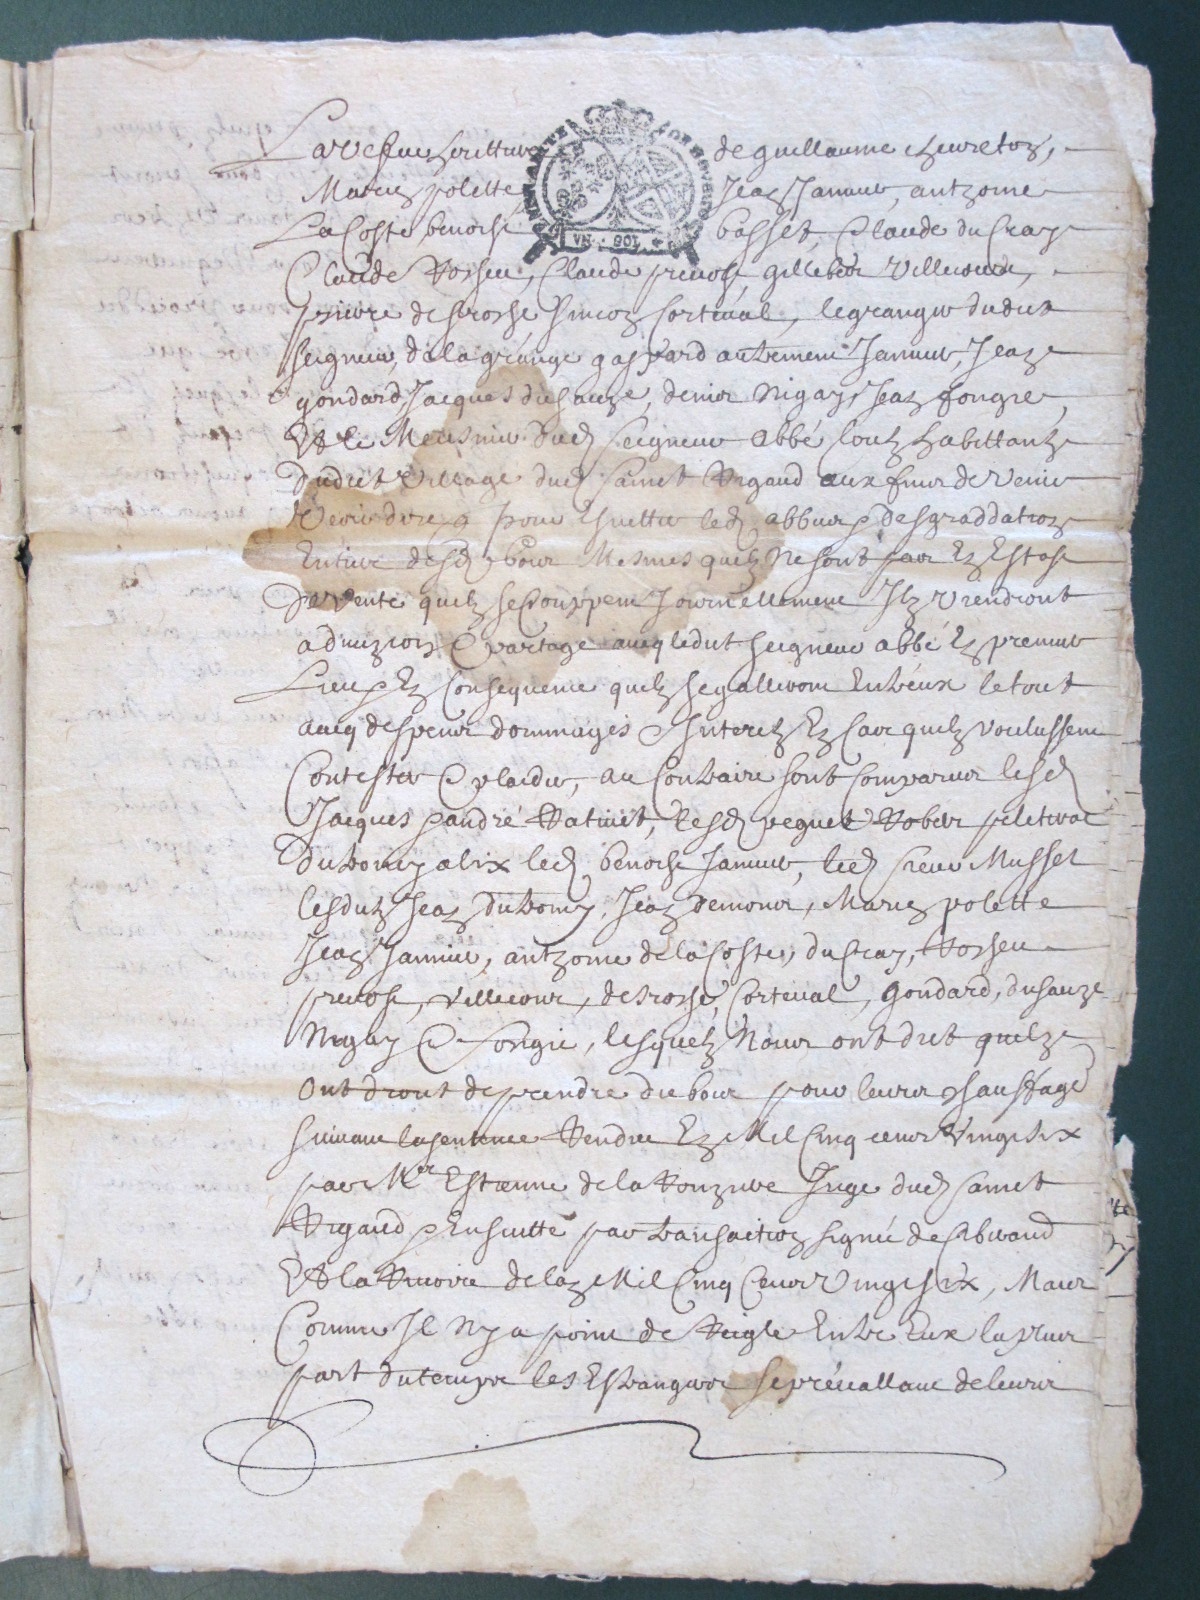 La vefue de guillaume cheureton,
Marie polette Jean Janniet, anthoine
La Coste benoist basset, Claude du Cray
Claude Rosseu, Claude preuost, gillebert Villecourt,
pierre desrosse simeon Corteual, le granger dudict
seigneur, de la grange gaspard autrement Janniet, Jean
gondard Jacques du sauze, denis Nigay, Jean fongie,
Et le Meusnier dud seigneur abbé soulz habittantz
dudict village dud sainct Rigaud aux fins de venir
Veoir dire q pour esuitter led abbus & desgraddation
Entiere desd bois Mesmes quilz ne sont pas En Estast
de vente quilz se Couppent Journellement Ilz viendront
a diuizion & partage aueq ledict seigneur abbé En premier
Lieu & En Consequence quilz segalliront Entreux le tout
aueq despens dommages & Interetz En Cas quilz voulussent
Contester & plaider, au Contraire sont Comparus lesd
Jacques & andré Ratinet, lesd peguet Robert peletrat
Duthomy alix led benoist Janniet, led sieur Musset
lesdictz Jean Duthomy, Jean demont, Marie polette
Jean Janniet, anthoine de la Coste, du Cray, Rosseu
preuost, villecourt, desrosse, Corteual, gondard, du sauze
Nigay & fongie, lesquelz Nous ont dict quilz
Ont droict de prendre du bois pour leurs chauffage
suiuant la sentence Rendue En Mil Cinq cens Vingt six
par Mre Estienne de la Ronziere Juge dud sainct
Rigaud & Ensuitte par transaction signée de
Et la Riuoire de lan Mil Cinq Cens Vingt six, Mais
Comme Il Ny a point de Reigle Entre Eux la plus
part du temps les Estrangers se preuallant de leurs